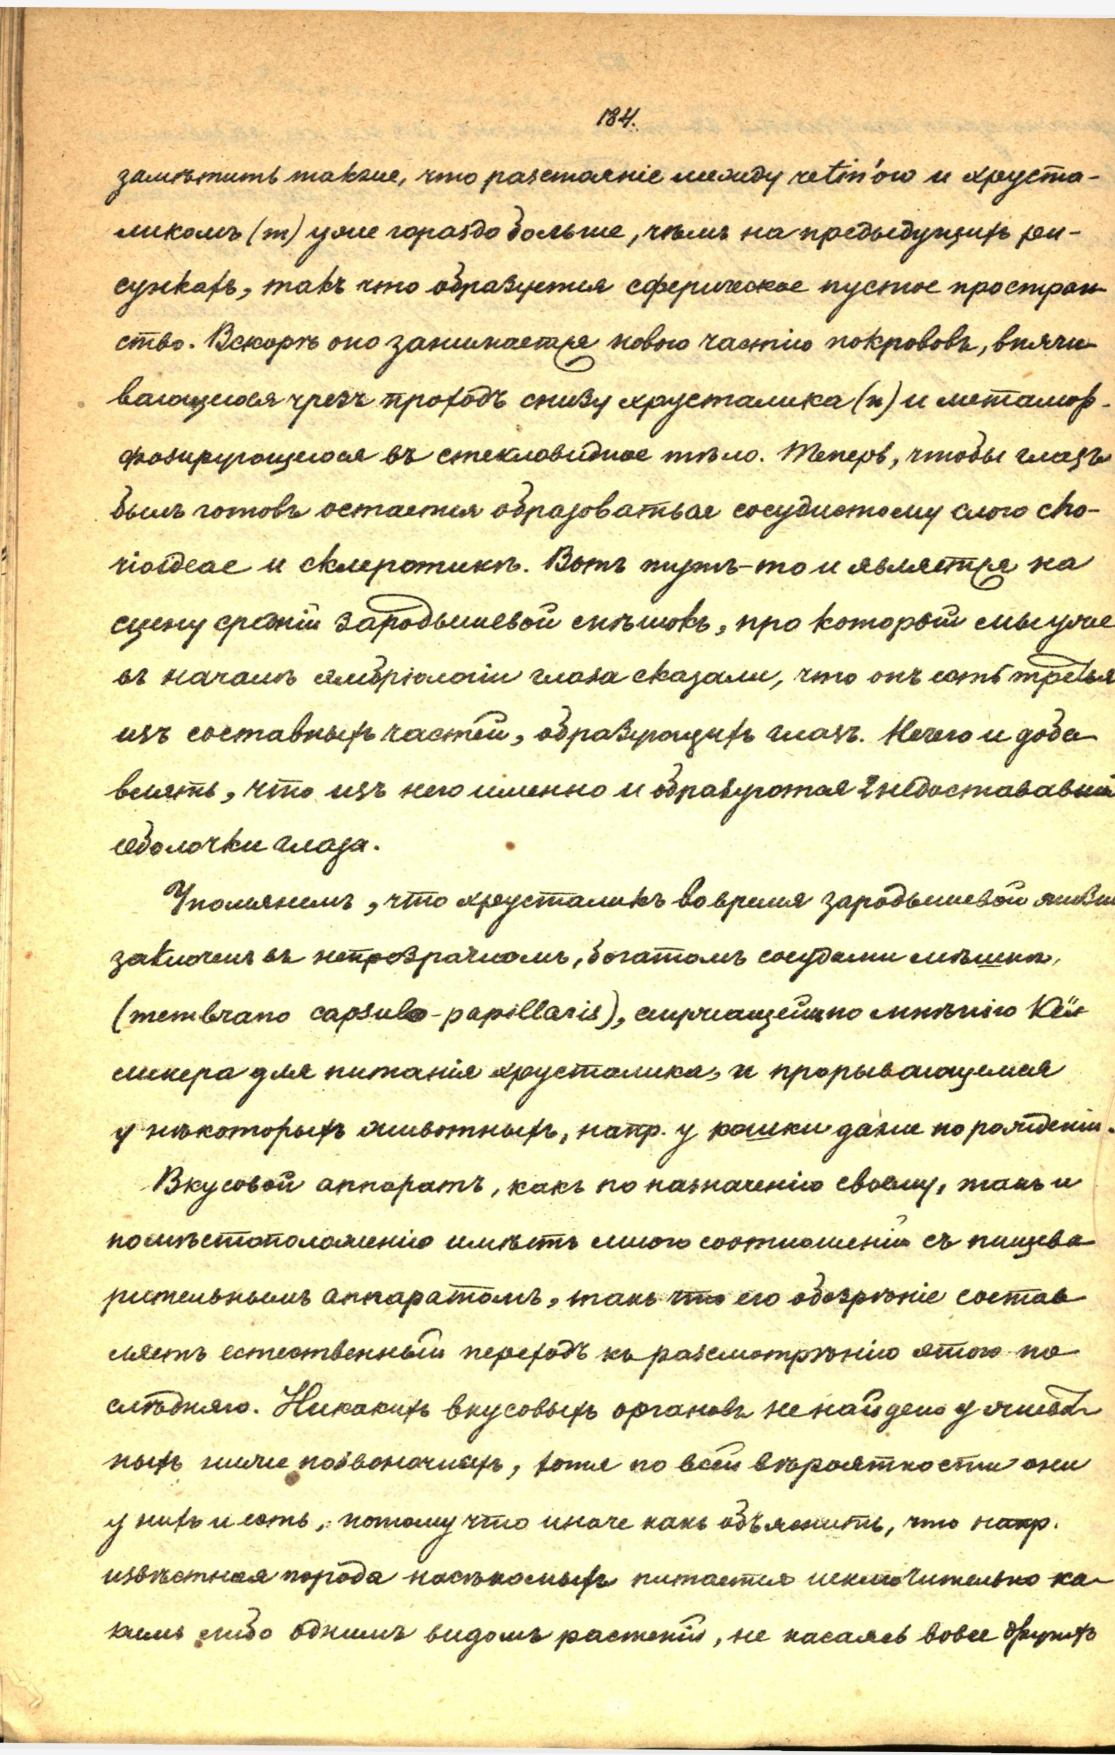 184.
замѣтить также, что разстояніе между retin'ою и хруста-
ликомъ (m) уже гораздо больше, чѣмъ на предыдущихъ ри-
сункахъ, такъ что образуется сферическое пустое простран-
ство. Вскорѣ оно занимается новою частію покрововъ, впячи-
вающеюся чрезъ проходъ снизу хрусталика (n) и метамор-
фозирующеюся въ стекловидное тѣло. Теперь, чтобы глазъ
былъ готовъ остается образоваться сосудистому слою cho-
rioideae и склеротикѣ. Вотъ тутъ-то и является на
сцену средній зародышевой мѣшокъ, про который мы уже
въ началѣ эмбріологіи глаза сказали, что онъ есть третья
изъ составныхъ частей, образующихъ глазъ. Нечего и доба-
влять, что изъ него именно и образуются 2 недостававшія
оболочки глаза.
Упомянемъ, что хрусталикъ во время зародышевой жизни
заключенъ въ непрозрачномъ, богатомъ сосудами мѣшкѣ,
(membrano capsulo-papillaris), служащей по мнѣнію Кёл-
ликера для питанія хрусталика, и прорывающемся
у нѣкоторыхъ животныхъ, напр. у кошки даже по рожденіи.
Вкусовой аппаратъ, какъ по назначенію своему, такъ и
по мѣстоположенію имѣетъ много соотношеній съ пищева-
рительнымъ аппаратомъ, такъ что его обозрѣніе состав-
ляетъ естественный переходъ къ разсмотрѣнію этого по-
слѣдняго. Никакихъ вкусовыхъ органовъ не найдено у живот-
ныхъ ниже позвоночныхъ, хотя по всей вѣроятности они
у нихъ и есть, потому что иначе какъ объяснить, что напр.
извѣстная порода насѣкомыхъ питается исключительно ка-
кимъ либо однимъ видомъ растеній, не касаясь вовсе другихъ